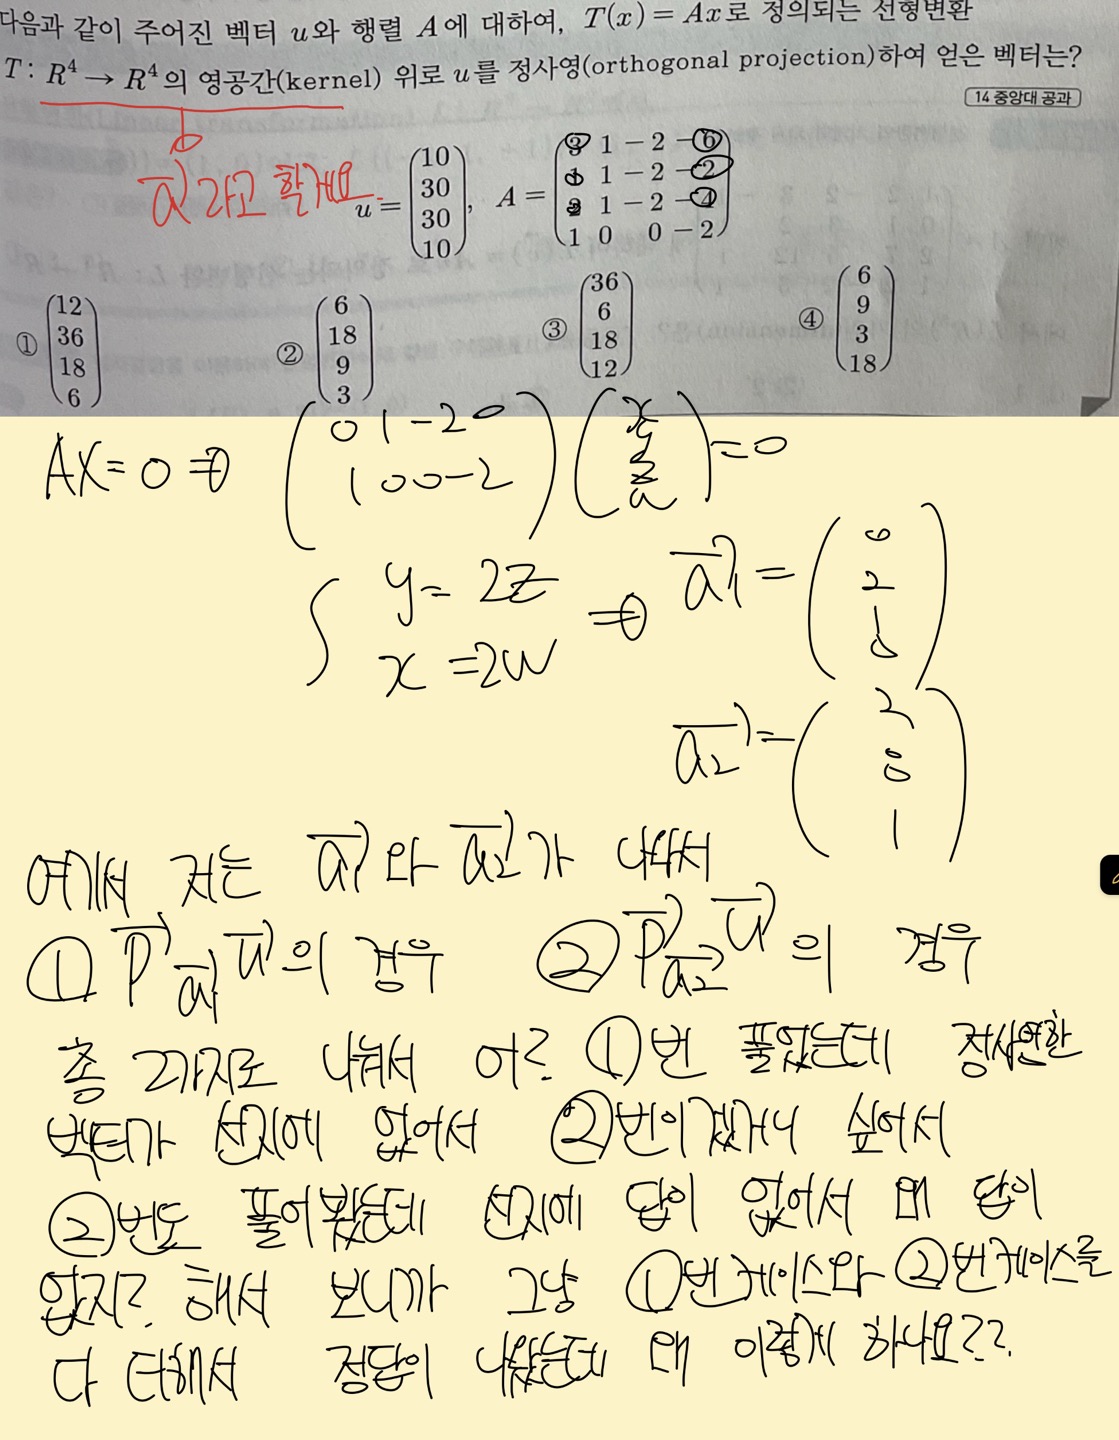 다음과 같이 주어진 벡터 u와 행렬 A에 대하여, T(x)=Ax로 정의되는 선형변환
T: R⁴ → R⁴의 영공간(kernel) 위로 u를 정사영(orthogonal projection)하여 얻은 벡터는?
14 중앙대 공과
a라고 할게요.
u = (10 30 30 10), A = (3 1 −2 −6
1 1 −2 −2
2 1 −2 −4
1 0 0 −2)
① (12 36 18 6) ② (6 18 9 3) ③ (36 6 18 12) ④ (6 9 3 18)
AX = 0 ⇒ (0 1 −2 0
1 0 0 −2) (x y z w) = 0
y = 2z ⇒ a1 = (0 2 1 0)
x = 2w
a2 = (2 0 1)
여기서 저는 a1와 a2가 나와서
① P a1 u의 경우 ② P a2 u의 경우
총 2가지로 나눠서 어? ①번 풀었는데 정사영한
벡터가 선지에 없어서 ②번이겠거니 싶어서
②번도 풀어봤는데 선지에 답이 없어서 왜 답이
없지? 해서 보니까 그냥 ①번케이스와 ②번케이스를
다 더해서 정답이 나왔는데 왜 이렇게 하나요??